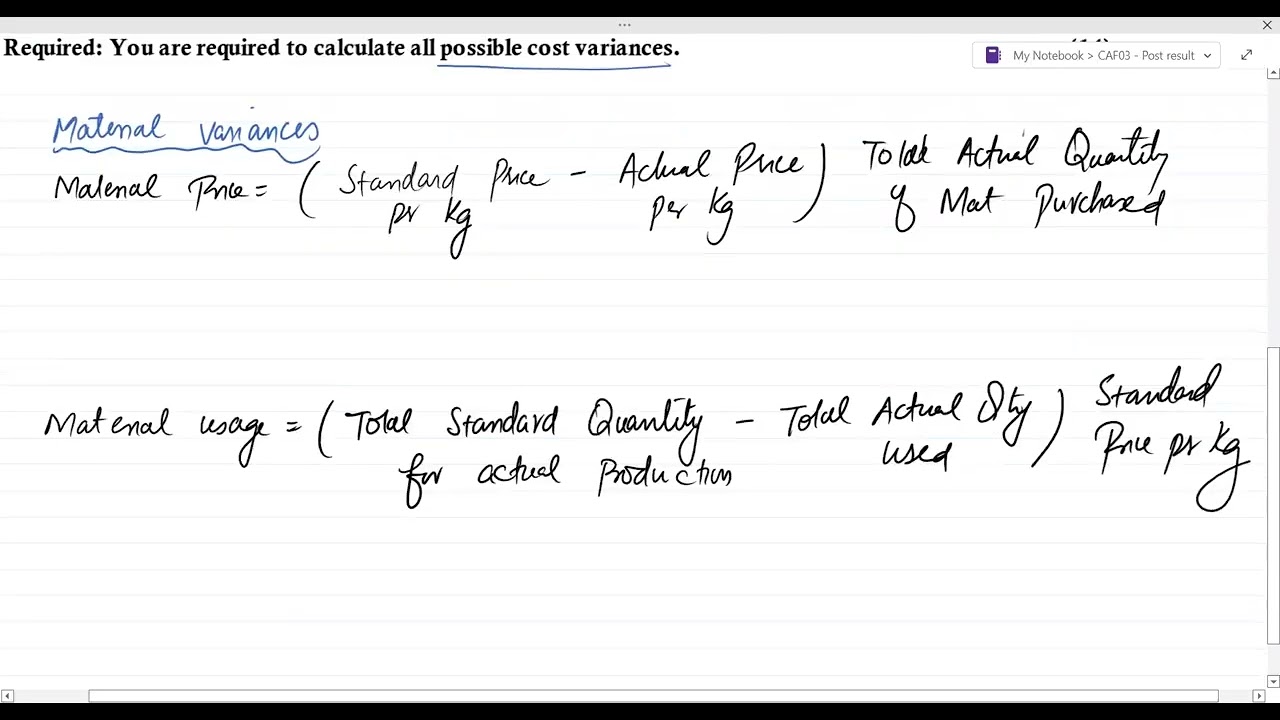 Required: You are required to calculate all possible cost variances.
My Notebook > CAF03 - Post result
Material variances
Material Price = ( Standard Price - Actual Price ) Total Actual Quantity
pr kg per kg of Mat Purchased
Material usage = ( Total Standard Quantity - Total Actual Qty ) Standard
for actual Production used Price pr kg